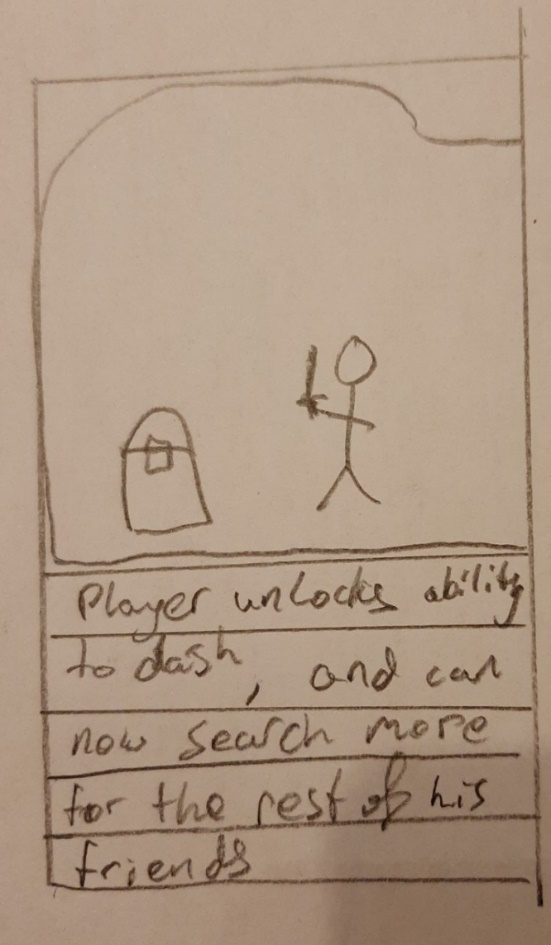 Player unlocks ability
to dash, and can
now search more
for the rest of his
friends